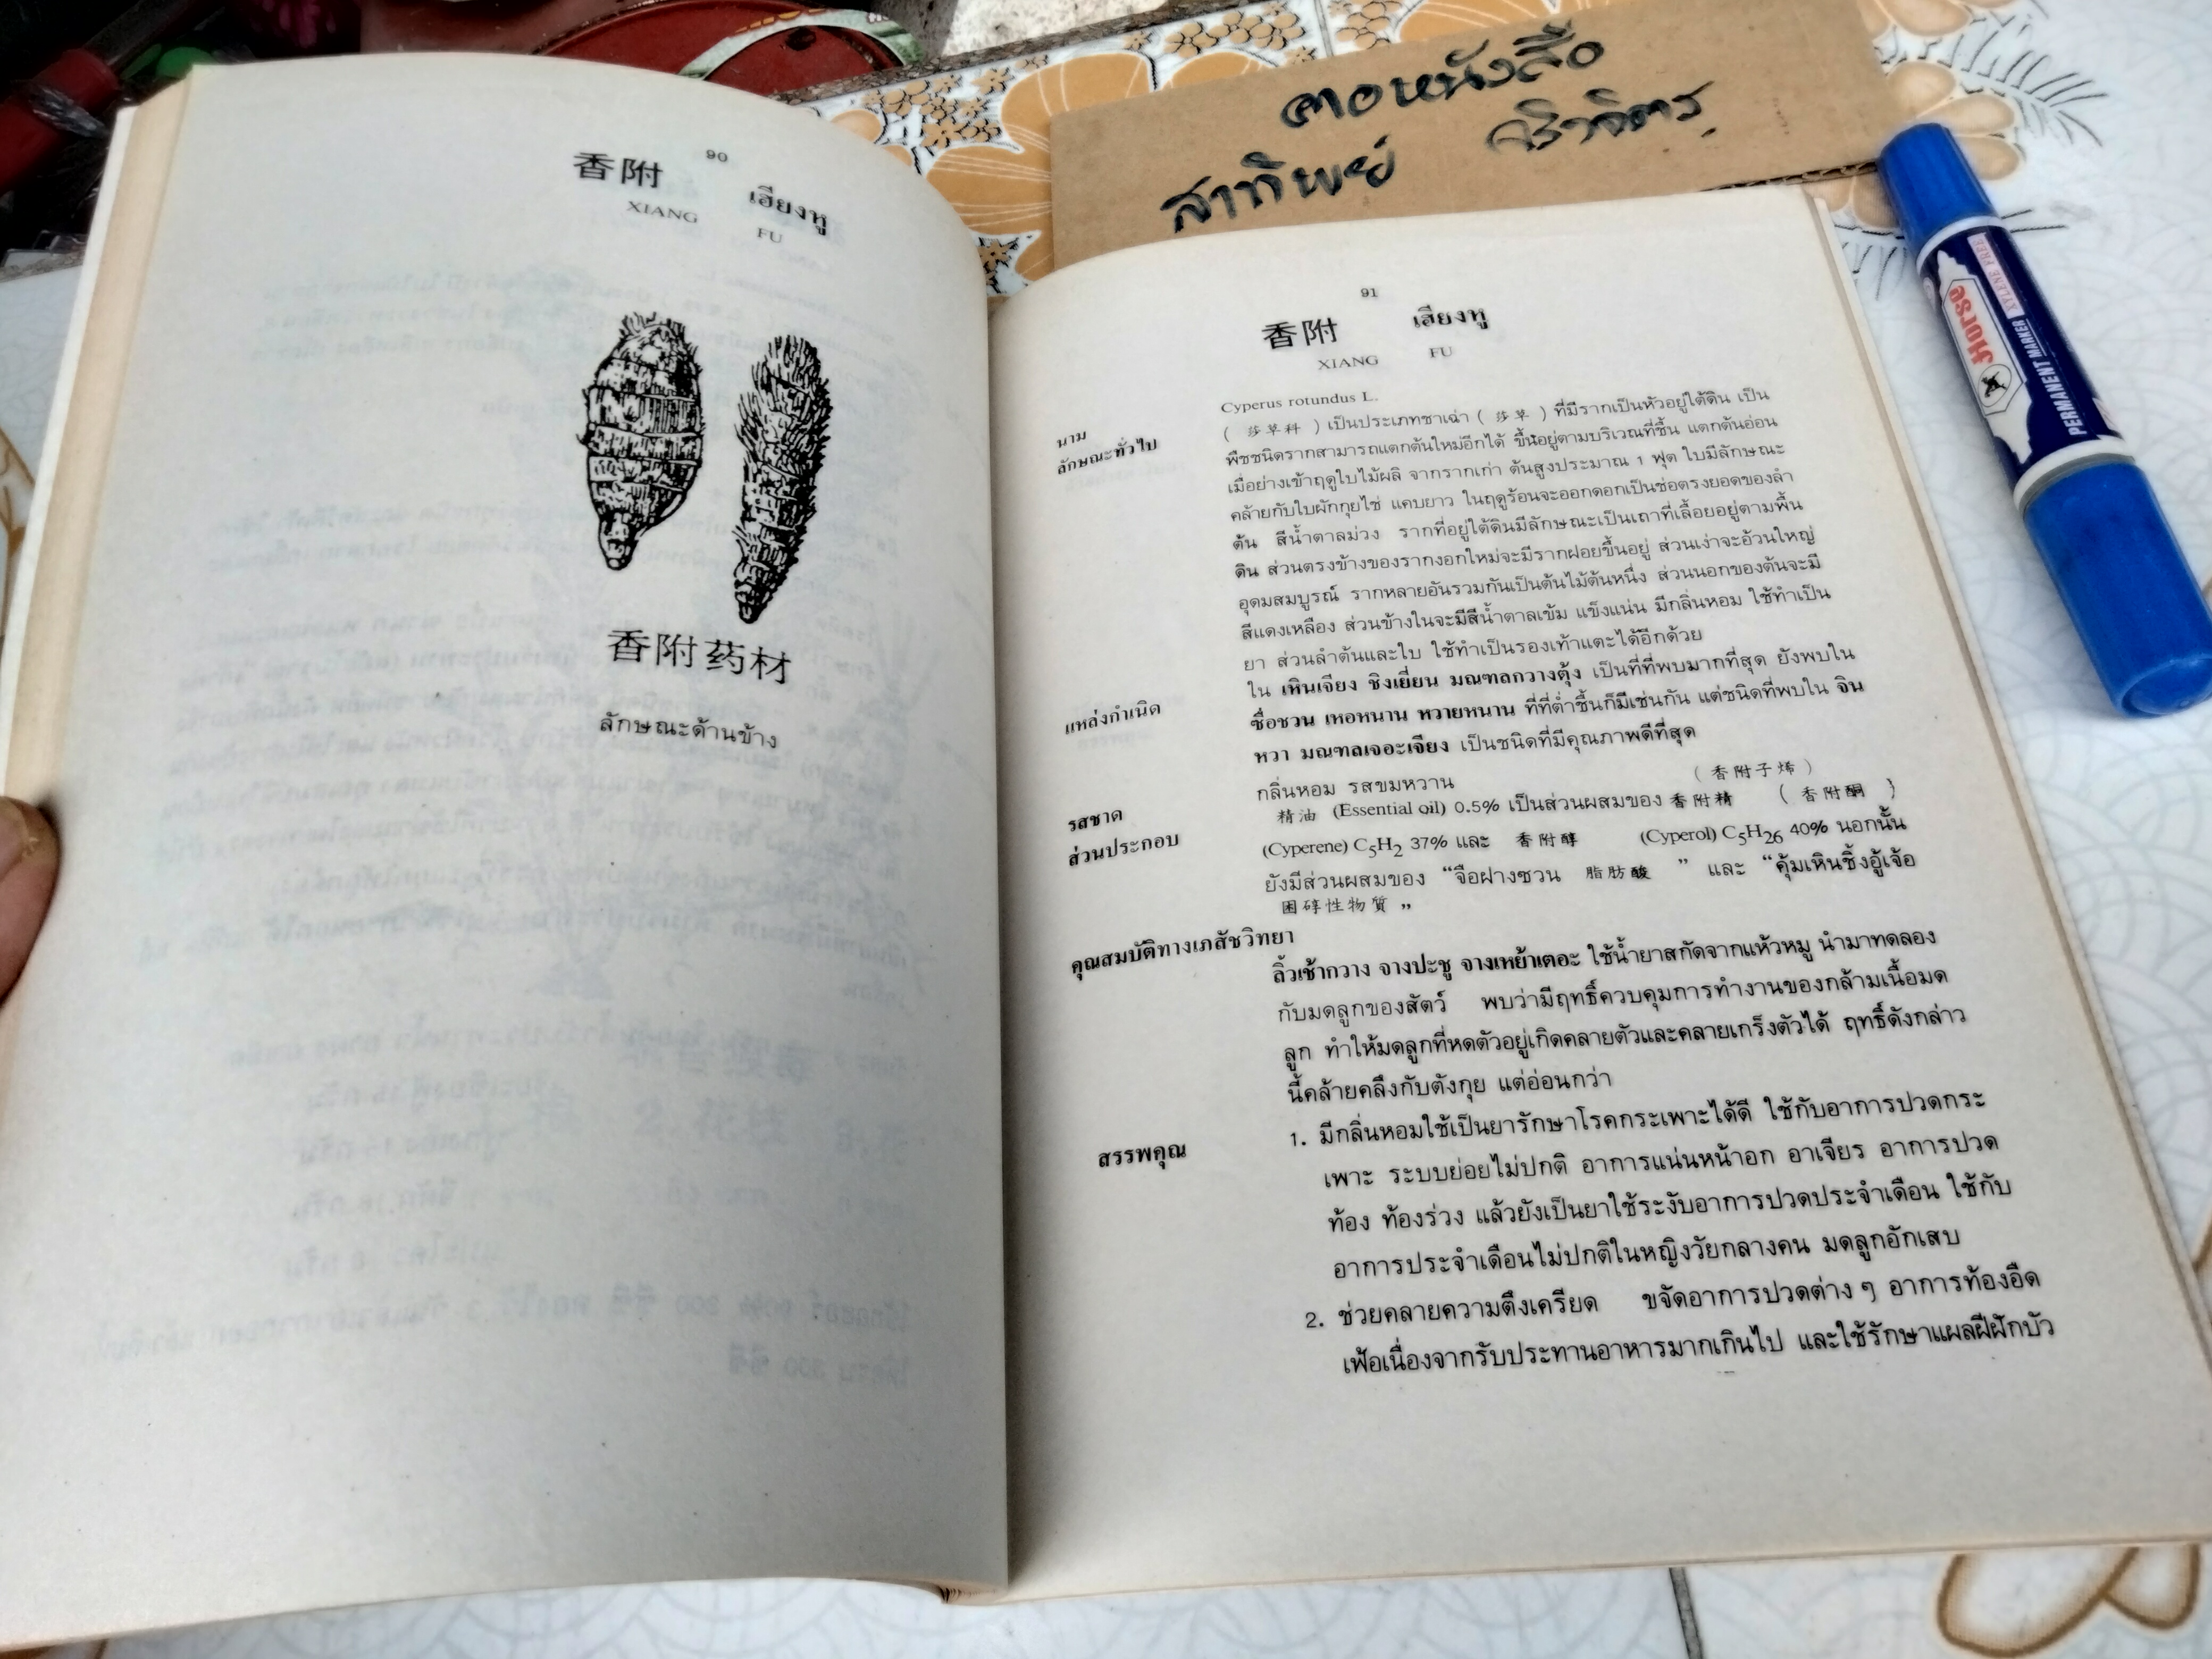 90
香附 เฮียงหู
XIANG FU
香附药材
ลักษณะด้านข้าง
คอหนังสือ
สาทิพย์
Horse
XYLENE FREE
PERMANENT MARKER
91
香附 เฮียงหู
XIANG FU
นาม Cyperus rotundus L.
ลักษณะทั่วไป ( 莎草科 ) เป็นประเภทซาเฉ่า ( 莎草 ) ที่มีรากเป็นหัวอยู่ใต้ดิน เป็น
พืชชนิดรากสามารถแตกต้นใหม่อีกได้ ขึ้นอยู่ตามบริเวณที่ชื้น แตกต้นอ่อน
เมื่อย่างเข้าฤดูใบไม้ผลิ จากรากเก่า ต้นสูงประมาณ 1 ฟุต ใบมีลักษณะ
คล้ายกับใบผักกุยไช่ แคบยาว ในฤดูร้อนจะออกดอกเป็นช่อตรงยอดของลำ
ต้น สีน้ำตาลม่วง รากที่อยู่ใต้ดินมีลักษณะเป็นเถาที่เลื้อยอยู่ตามพื้น
ดิน ส่วนตรงข้างของรากงอกใหม่จะมีรากฝอยขึ้นอยู่ ส่วนเง่าจะอ้วนใหญ่
อุดมสมบูรณ์ รากหลายอันรวมกันเป็นต้นไม้ต้นหนึ่ง ส่วนนอกของต้นจะมี
สีแดงเหลือง ส่วนข้างในจะมีสีน้ำตาลเข้ม แข็งแน่น มีกลิ่นหอม ใช้ทำเป็น
ยา ส่วนลำต้นและใบ ใช้ทำเป็นรองเท้าแตะได้อีกด้วย
แหล่งกำเนิด ใน เหินเจียง ชิงเยี่ยน มณฑลกวางตุ้ง เป็นที่ที่พบมากที่สุด ยังพบใน
ซื่อชวน เหอหนาน หวายหนาน ที่ที่ต่ำชื้นก็มีเช่นกัน แต่ชนิดที่พบใน จิน
หวา มณฑลเจอะเจียง เป็นชนิดที่มีคุณภาพดีที่สุด
รสชาด กลิ่นหอม รสขมหวาน ( 香附子烯 )
ส่วนประกอบ 精油 (Essential oil) 0.5% เป็นส่วนผสมของ 香附精 ( 香附酮 )
(Cyperene) C5H2 37% และ 香附醇 (Cyperol) C5H26 40% นอกนั้น
ยังมีส่วนผสมของ “จือฝางซวน 脂肪酸 ” และ “คุ้มเหินชิ้งอู้เจ้อ
困碍性物質 ”
คุณสมบัติทางเภสัชวิทยา
ลิ้วเช้ากวาง จางปะชู จางเหย้าเตอะ ใช้น้ำยาสกัดจากแห้วหมู นำมาทดลอง
กับมดลูกของสัตว์ พบว่ามีฤทธิ์ควบคุมการทำงานของกล้ามเนื้อมด
ลูก ทำให้มดลูกที่หดตัวอยู่เกิดคลายตัวและคลายเกร็งตัวได้ ฤทธิ์ดังกล่าว
นี้คล้ายคลึงกับตังกุย แต่อ่อนกว่า
สรรพคุณ 1. มีกลิ่นหอมใช้เป็นยารักษาโรคกระเพาะได้ดี ใช้กับอาการปวดกระ
เพาะ ระบบย่อยไม่ปกติ อาการแน่นหน้าอก อาเจียร อาการปวด
ท้อง ท้องร่วง แล้วยังเป็นยาใช้ระงับอาการปวดประจำเดือน ใช้กับ
อาการประจำเดือนไม่ปกติในหญิงวัยกลางคน มดลูกอักเสบ
2. ช่วยคลายความตึงเครียด ขจัดอาการปวดต่าง ๆ อาการท้องอืด
เฟ้อเนื่องจากรับประทานอาหารมากเกินไป และใช้รักษาแผลฝีฝักบัว